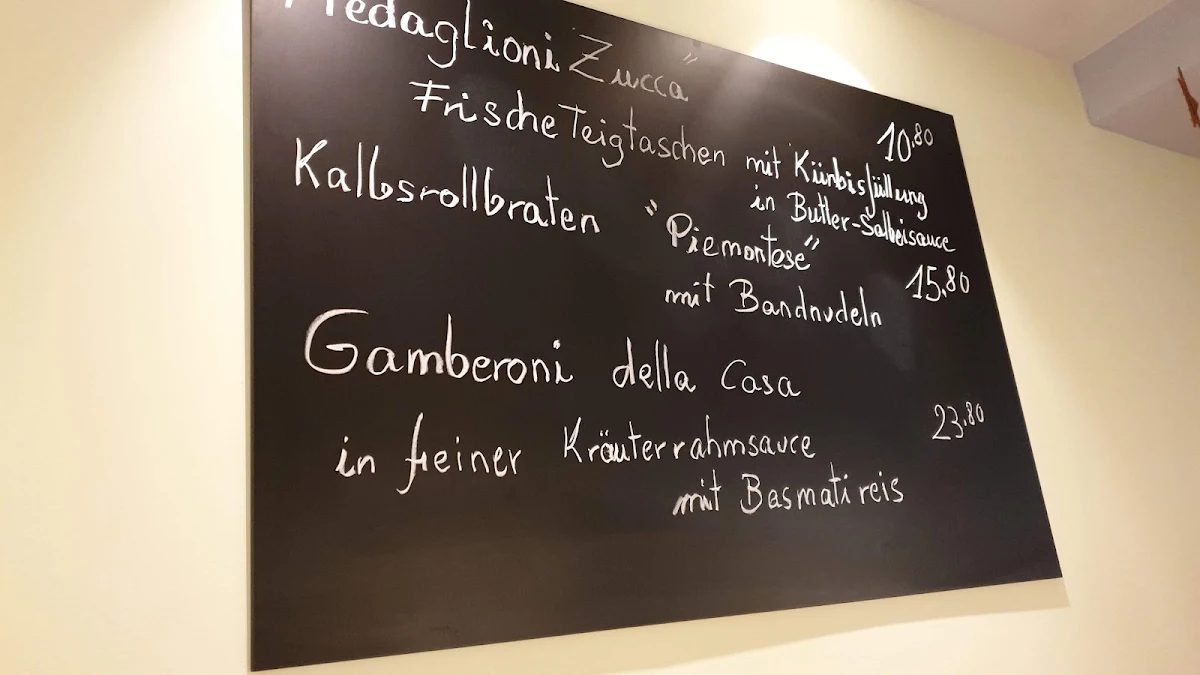 Medaglioni Zucca"
10.80
Frische Teigtaschen mit Kürbisfüllung
in Butter-Salbeisauce
Kalbsrollbraten "Piemontese"
15.80
mit Bandnudeln
Gamberoni della Casa
23.80
in feiner Kräuterrahmsauce
mit Basmatireis